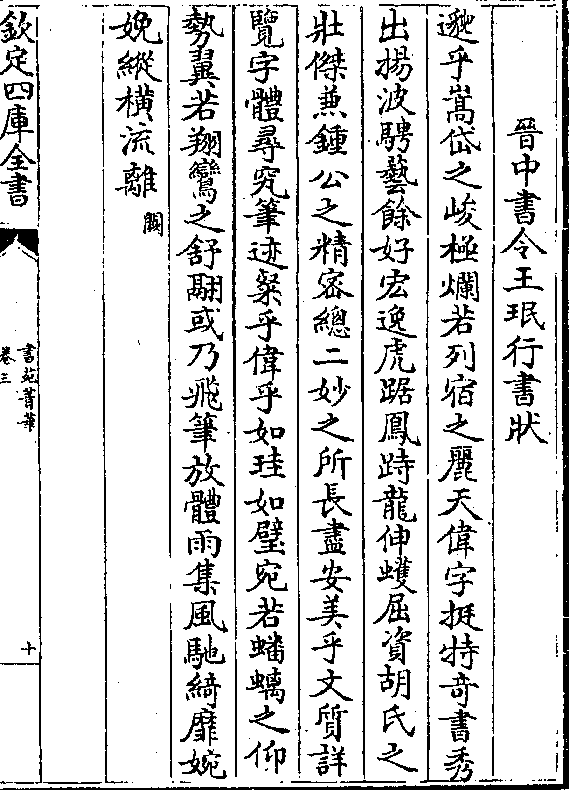 晉中書令王珉行書狀
邈乎嵩岱之峻極爛若列宿之麗天偉字挺特奇書秀
出揚波騁藝餘好宏逸虎踞鳳跱龍伸蠖屈資胡氏之
壯傑兼鍾公之精密總二妙之所長盡安美乎文質詳
覽字體尋究筆迹粲乎偉乎如珪如璧宛若蟠螭之仰
勢翼若翔鸞之舒翮或乃飛筆放體雨集風馳綺靡婉
娩縱橫流離 闕
欽定四庫全書
書苑菁華
卷三
十